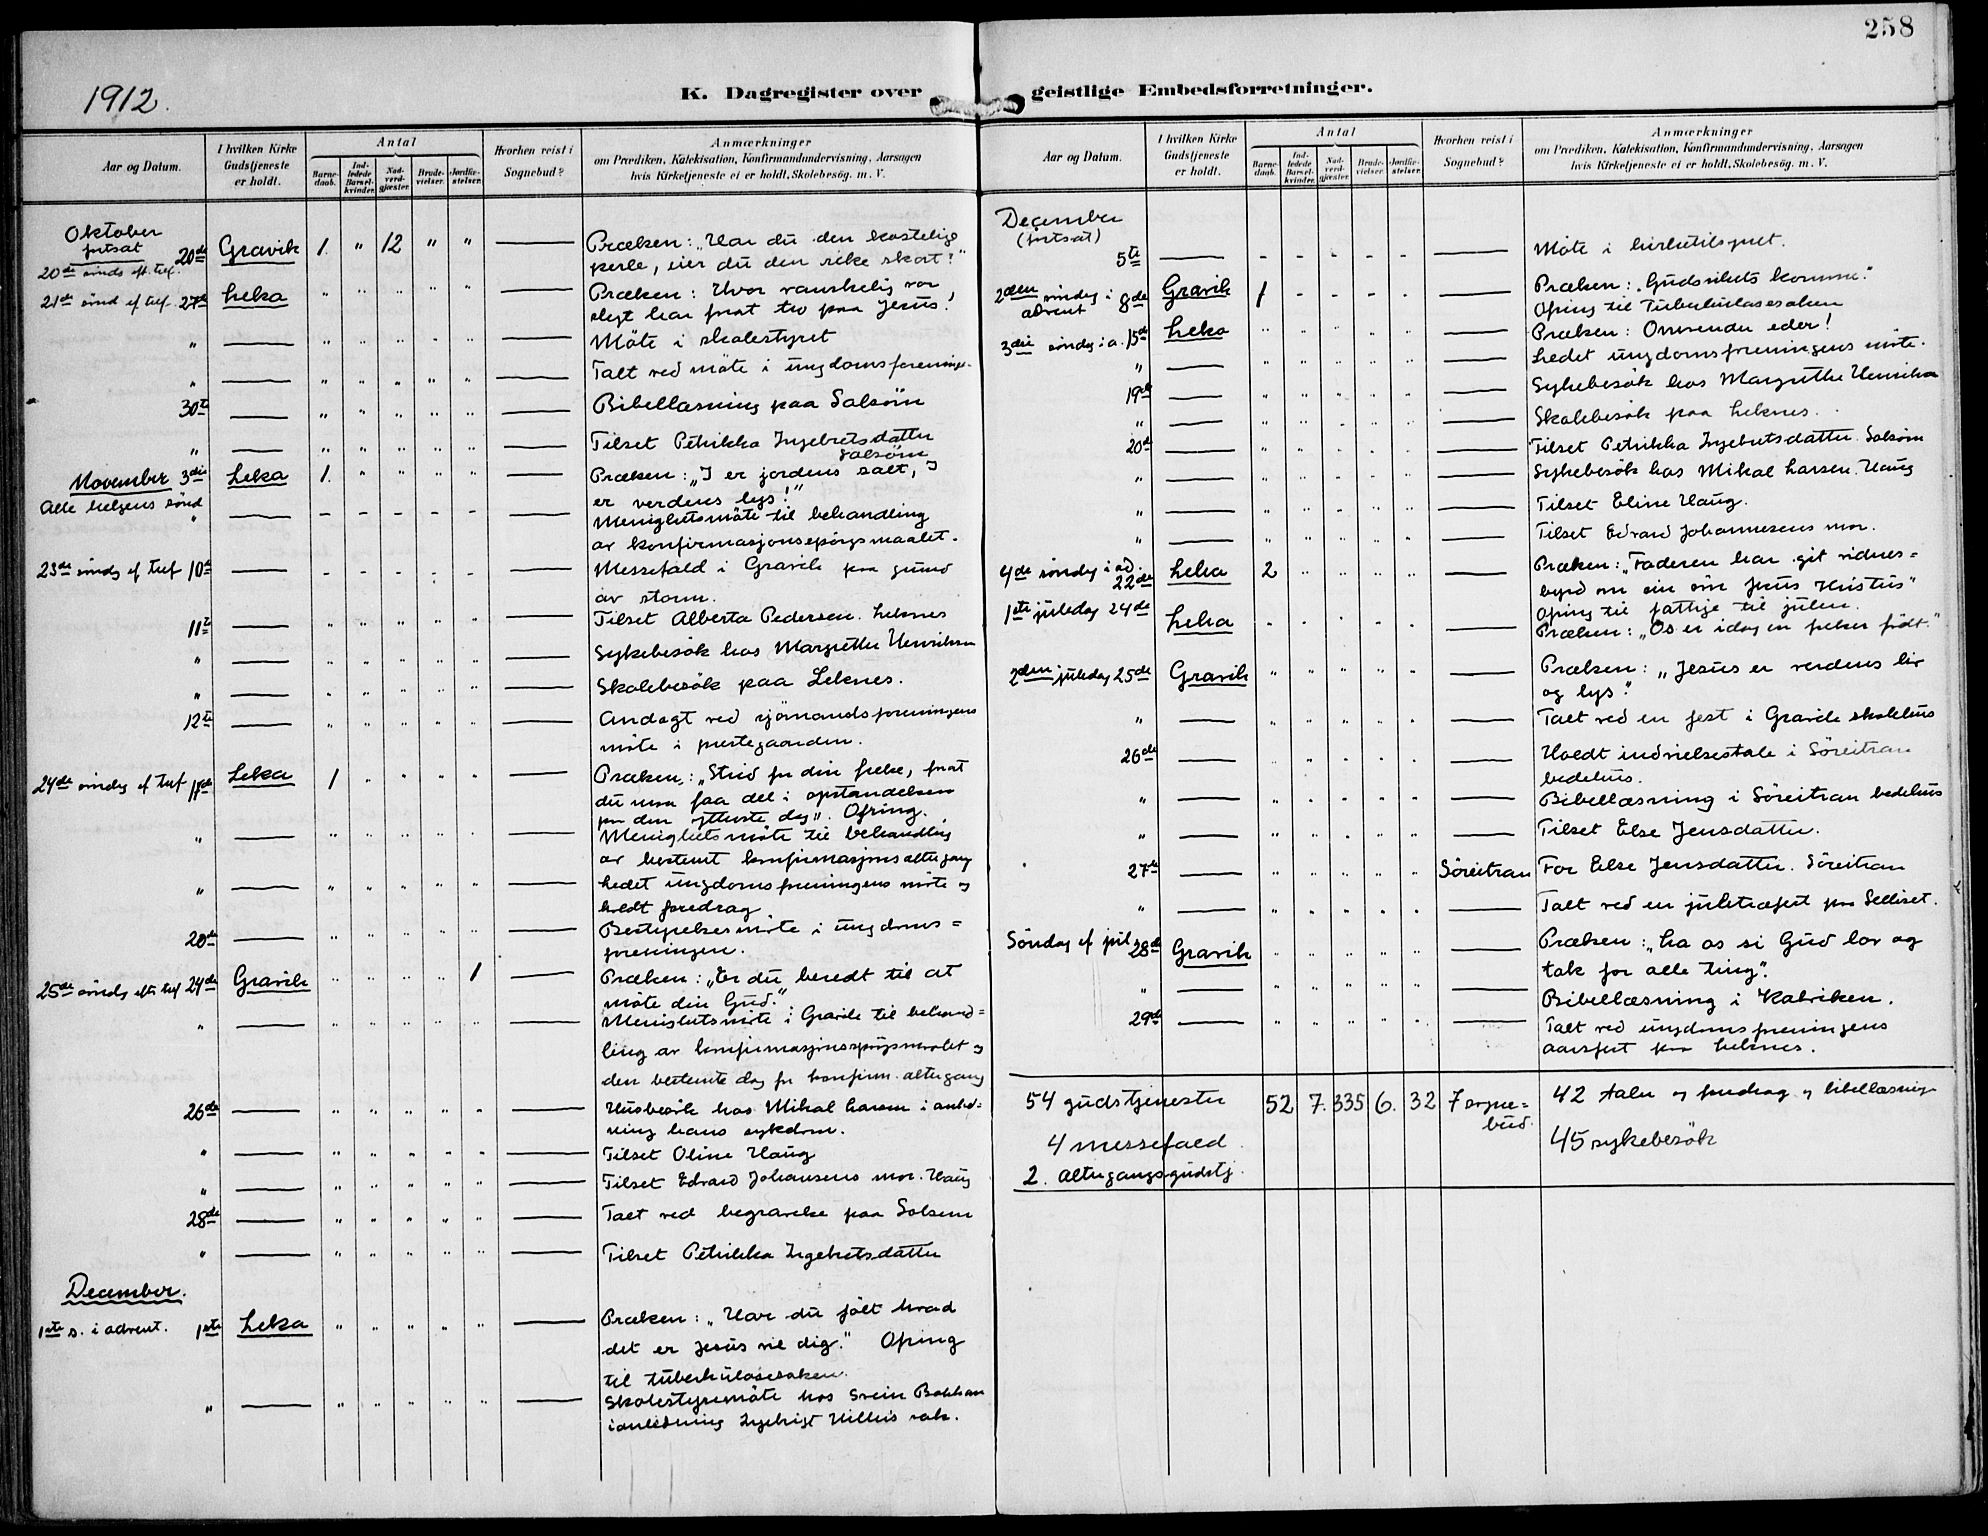 258
1912.
K. Dagregister over geistlige Embedsforretninger.
Aar og Datum.
I hvilken Kirke Gudstjeneste er holdt.
Antal
Barne-daab.
Ind-ledede Barsel-kvinder.
Nad-verd-gjæster.
Brude-vielser.
Jordfæ-stelser.
Hvorhen reist i Sognebud?
Anmærkninger
om Prædiken, Katekisation, Konfirmandundervisning, Aarsagen
hvis Kirketjeneste ei er holdt, Skolebesög. m. V.
Oktober
fortsat
20de sönds eft. tref. 20de Gravik 1. " 12 " " Præken: "Har du den kostelige
perle, eier du den rike skat?"
21de sönd ef tref. 27de Leka " " " " " Præken: Hvor vanskelig vor
slegt har faat tro paa Jesus!
" Möte i skolestyret
" Talt ved möte i ungdomsforeninge.
30te Bibellæsning paa Solsöm
" Tilset Petrikka Ingebretsdatter
Solsöm
November 3die Leka 1. Præken: "I er jordens salt, I
er verdens lys!"
Alle helgens sönd
" Menighetsmöte til behandling
av konfirmasjonsspörgsmaalet.
23de sönds ef tref 10de Messefald i Gravik paa grund
av storm.
11te Tilset Alberta Pedersen. Leknes
" Sykebesök hos Margrethe Henriksen
" Skolebesök paa Leknes.
12te Andagt ved sjömandsforeningens
möte i prestegaarden.
24de sönds ef tref 17de Leka 1 Præken: "Strid for din frelse, forat
du maa faa del i opstandelsen
paa den ytterste dag". Ofring.
" Menighetsmöte til behandling
av bestemt konfirmasjonsaltergang
" Ledet ungdomsforeningens möte og
holdt foredrag
20de Bestyrelsesmöte i ungdoms=
foreningen.
25de sönds efter tref 24de Gravik 1 Præken: "Er du beredt til at
möte din Gud."
" Menighetsmöte i Gravik til behand=
ling av konfirmasjonsspörgsmaalet og
den bestemte dag for konfirm. altergang
26de Husbesök hos Mikal Larsen i anled=
ning hans sykdom.
" Tilset Oline Haug
" Tilset Edvard Johansens mor. Haug
28de Talt ved begravelse paa Solsem
" Tilset Petrikka Ingebretsdatter
December.
1ste s. i advent. 1ste Leka Præken: "Har du fölt hvad
det er Jesus vil dig." Ofring
til tuberkulosesaken.
" Skolestyremöte hos Svein
i anledning sak.
Aar og Datum.
I hvilken Kirke Gudstjeneste er holdt.
Antal
Barne-daab.
Ind-ledede Barsel-kvinder.
Nad-verd-gjæster.
Brude-vielser.
Jordfæ-stelser.
Hvorhen reist i Sognebud?
Anmærkninger
om Prædiken, Katekisation, Konfirmandundervisning, Aarsagen
hvis Kirketjeneste ei er holdt, Skolebesög. m. V.
December
(fortsat)
5te Möte i kirketilsynet.
2den söndag i advent 8de Gravik 1 Præken: "Gudsrikets komme."
Ofring til Tuberkulosesaken
3die söndag i a. 15de Leka Præken: Omvender eder!
" Ledet ungdomsforeningens möte.
19de Sykebesök hos Margrethe Henriksen
" Skolebesök paa Leknes.
20de Tilset Petrikka Ingebretsdatter. Solsöm
" Sykebesök hos Mikal Larsen. Haug
" Tilset Eline Haug.
" Tilset Edvard Johannesens mor.
4de söndag i ad. 22de Leka 2 Præken: "Faderen har git vidnes=
byrd om sin sön Jesus Kristus"
Ofring til fattige til julen.
1ste juledag 24de Leka Præken: "Os er idag en frelser födt."
2den juledag 25de Gravik Præken: "Jesus er verdens liv
og lys."
" Talt ved en fest i Gravik skolehus
26de Holdt indvielsestale i Söreitran
bedehus.
" Bibellæsning i Söreitran bedehus
" Tilset Else Jensdatter.
27de Söreitran For Else Jensdatter. Söreitran
" Talt ved en juletræfest paa Selliset.
Söndag ef jul 28de Gravik Præken: "La os si Gud lov og
tak for alle ting".
" Bibellæsning i Kalviken.
29de Talt ved ungdomsforeningens
aarsfest paa Leknes.
54 gudstjenester 52 7. 335 6. 32 7 sogne=
bud. 42 taler og foredrag og bibellæsninger
4 messefald 45 sykebesök
2. altergangsgudstj.